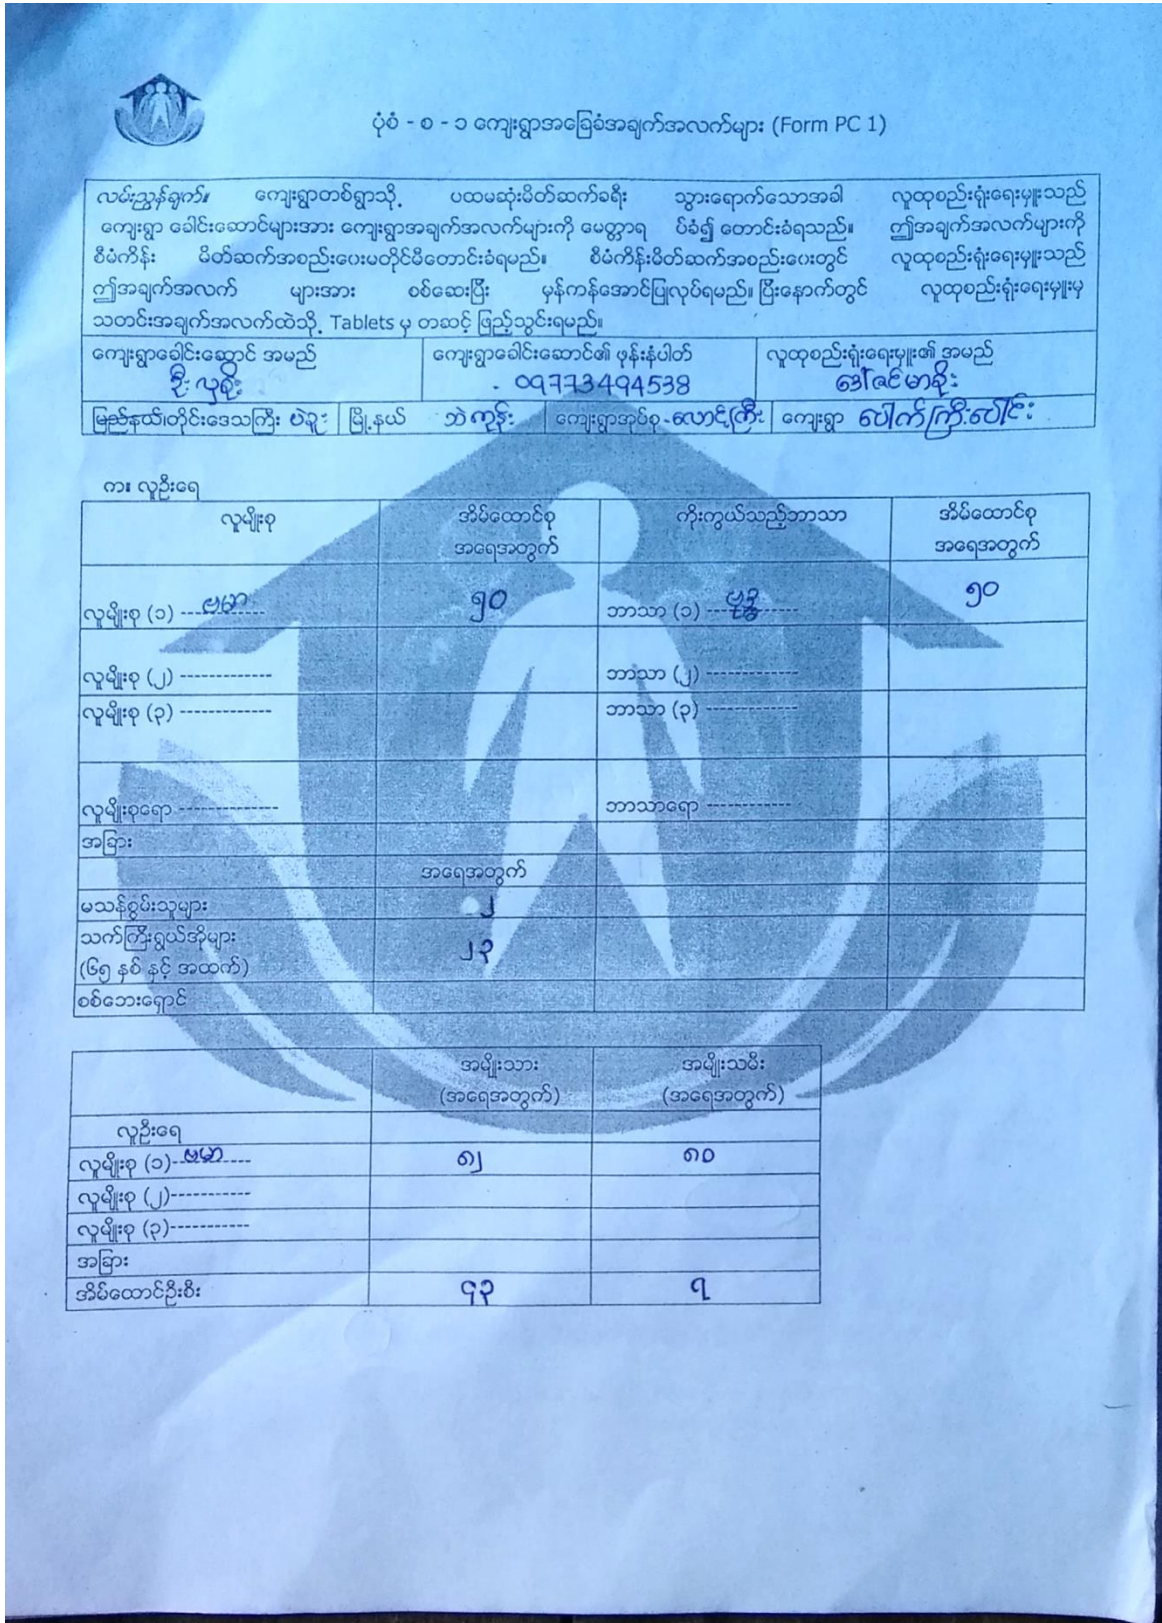 ပုံစံ - စ - ၁ ကျေးရွာအခြေခံအချက်အလက်များ (Form PC 1)
လမ်းညွှန်ချက်။ ကျေးရွာတစ်ရွာသို့ ပထမဆုံးမိတ်ဆက်ခရီး သွားရောက်သောအခါ လူထုစည်းရုံးရေးမှူးသည်
ကျေးရွာ ခေါင်းဆောင်များအား ကျေးရွာအချက်အလက်များကို မေတ္တာရ ပ်ခံ၍ တောင်းခံရသည်။ ဤအချက်အလက်များကို
စီမံကိန်း မိတ်ဆက်အစည်းဝေးမတိုင်မီတောင်းခံရမည်။ စီမံကိန်းမိတ်ဆက်အစည်းဝေးတွင် လူထုစည်းရုံးရေးမှူးသည်
ဤအချက်အလက် များအား စစ်ဆေးပြီး မှန်ကန်အောင်ပြုလုပ်ရမည်။ ပြီးနောက်တွင် လူထုစည်းရုံးရေးမှူးမှ
သတင်းအချက်အလက်ထဲသို့ Tablets မှ တဆင့် ဖြည့်သွင်းရမည်။
ကျေးရွာခေါင်းဆောင် အမည် ကျေးရွာခေါင်းဆောင်၏ ဖုန်းနံပါတ် လူထုစည်းရုံးရေးမှူး၏ အမည်
ဦးလှစိုး 09773494538 ဒေါ်ဇင်မာခိုး
မြည်နယ်၊တိုင်းဒေသကြီး ပဲခူး မြို့နယ် ကျေးရွာအုပ်စု - လောင်ကြီး ကျေးရွာ ပေါက်ကြီးပေါင်း
က။ လူဦးရေ
လူမျိုးစု အိမ်ထောင်စု ကိုးကွယ်သည့်ဘာသာ အိမ်ထောင်စု
အရေအတွက် အရေအတွက်
လူမျိုးစု (၁) ---ဗမာ--- ၅၀ ဘာသာ (၁) ---ဗုဒ္ဓ--- ၅၀
လူမျိုးစု (၂) ------------- ဘာသာ (၂) -------------
လူမျိုးစု (၃) ------------- ဘာသာ (၃) -------------
လူမျိုးစုရော -------------- ဘာသာရော ------------
အခြား
အရေအတွက်
မသန်စွမ်းသူများ ၂
သက်ကြီးရွယ်အိုများ ၂၃
(၆၅ နှစ် နှင့် အထက်)
စစ်ဘေးရှောင်
အမျိုးသား အမျိုးသမီး
(အရေအတွက်) (အရေအတွက်)
လူဦးရေ
လူမျိုးစု (၁)--ဗမာ---- ၈၂ ၈၀
လူမျိုးစု (၂)-----------
လူမျိုးစု (၃)-----------
အခြား
အိမ်ထောင်ဦးစီး ၄၃ ၇